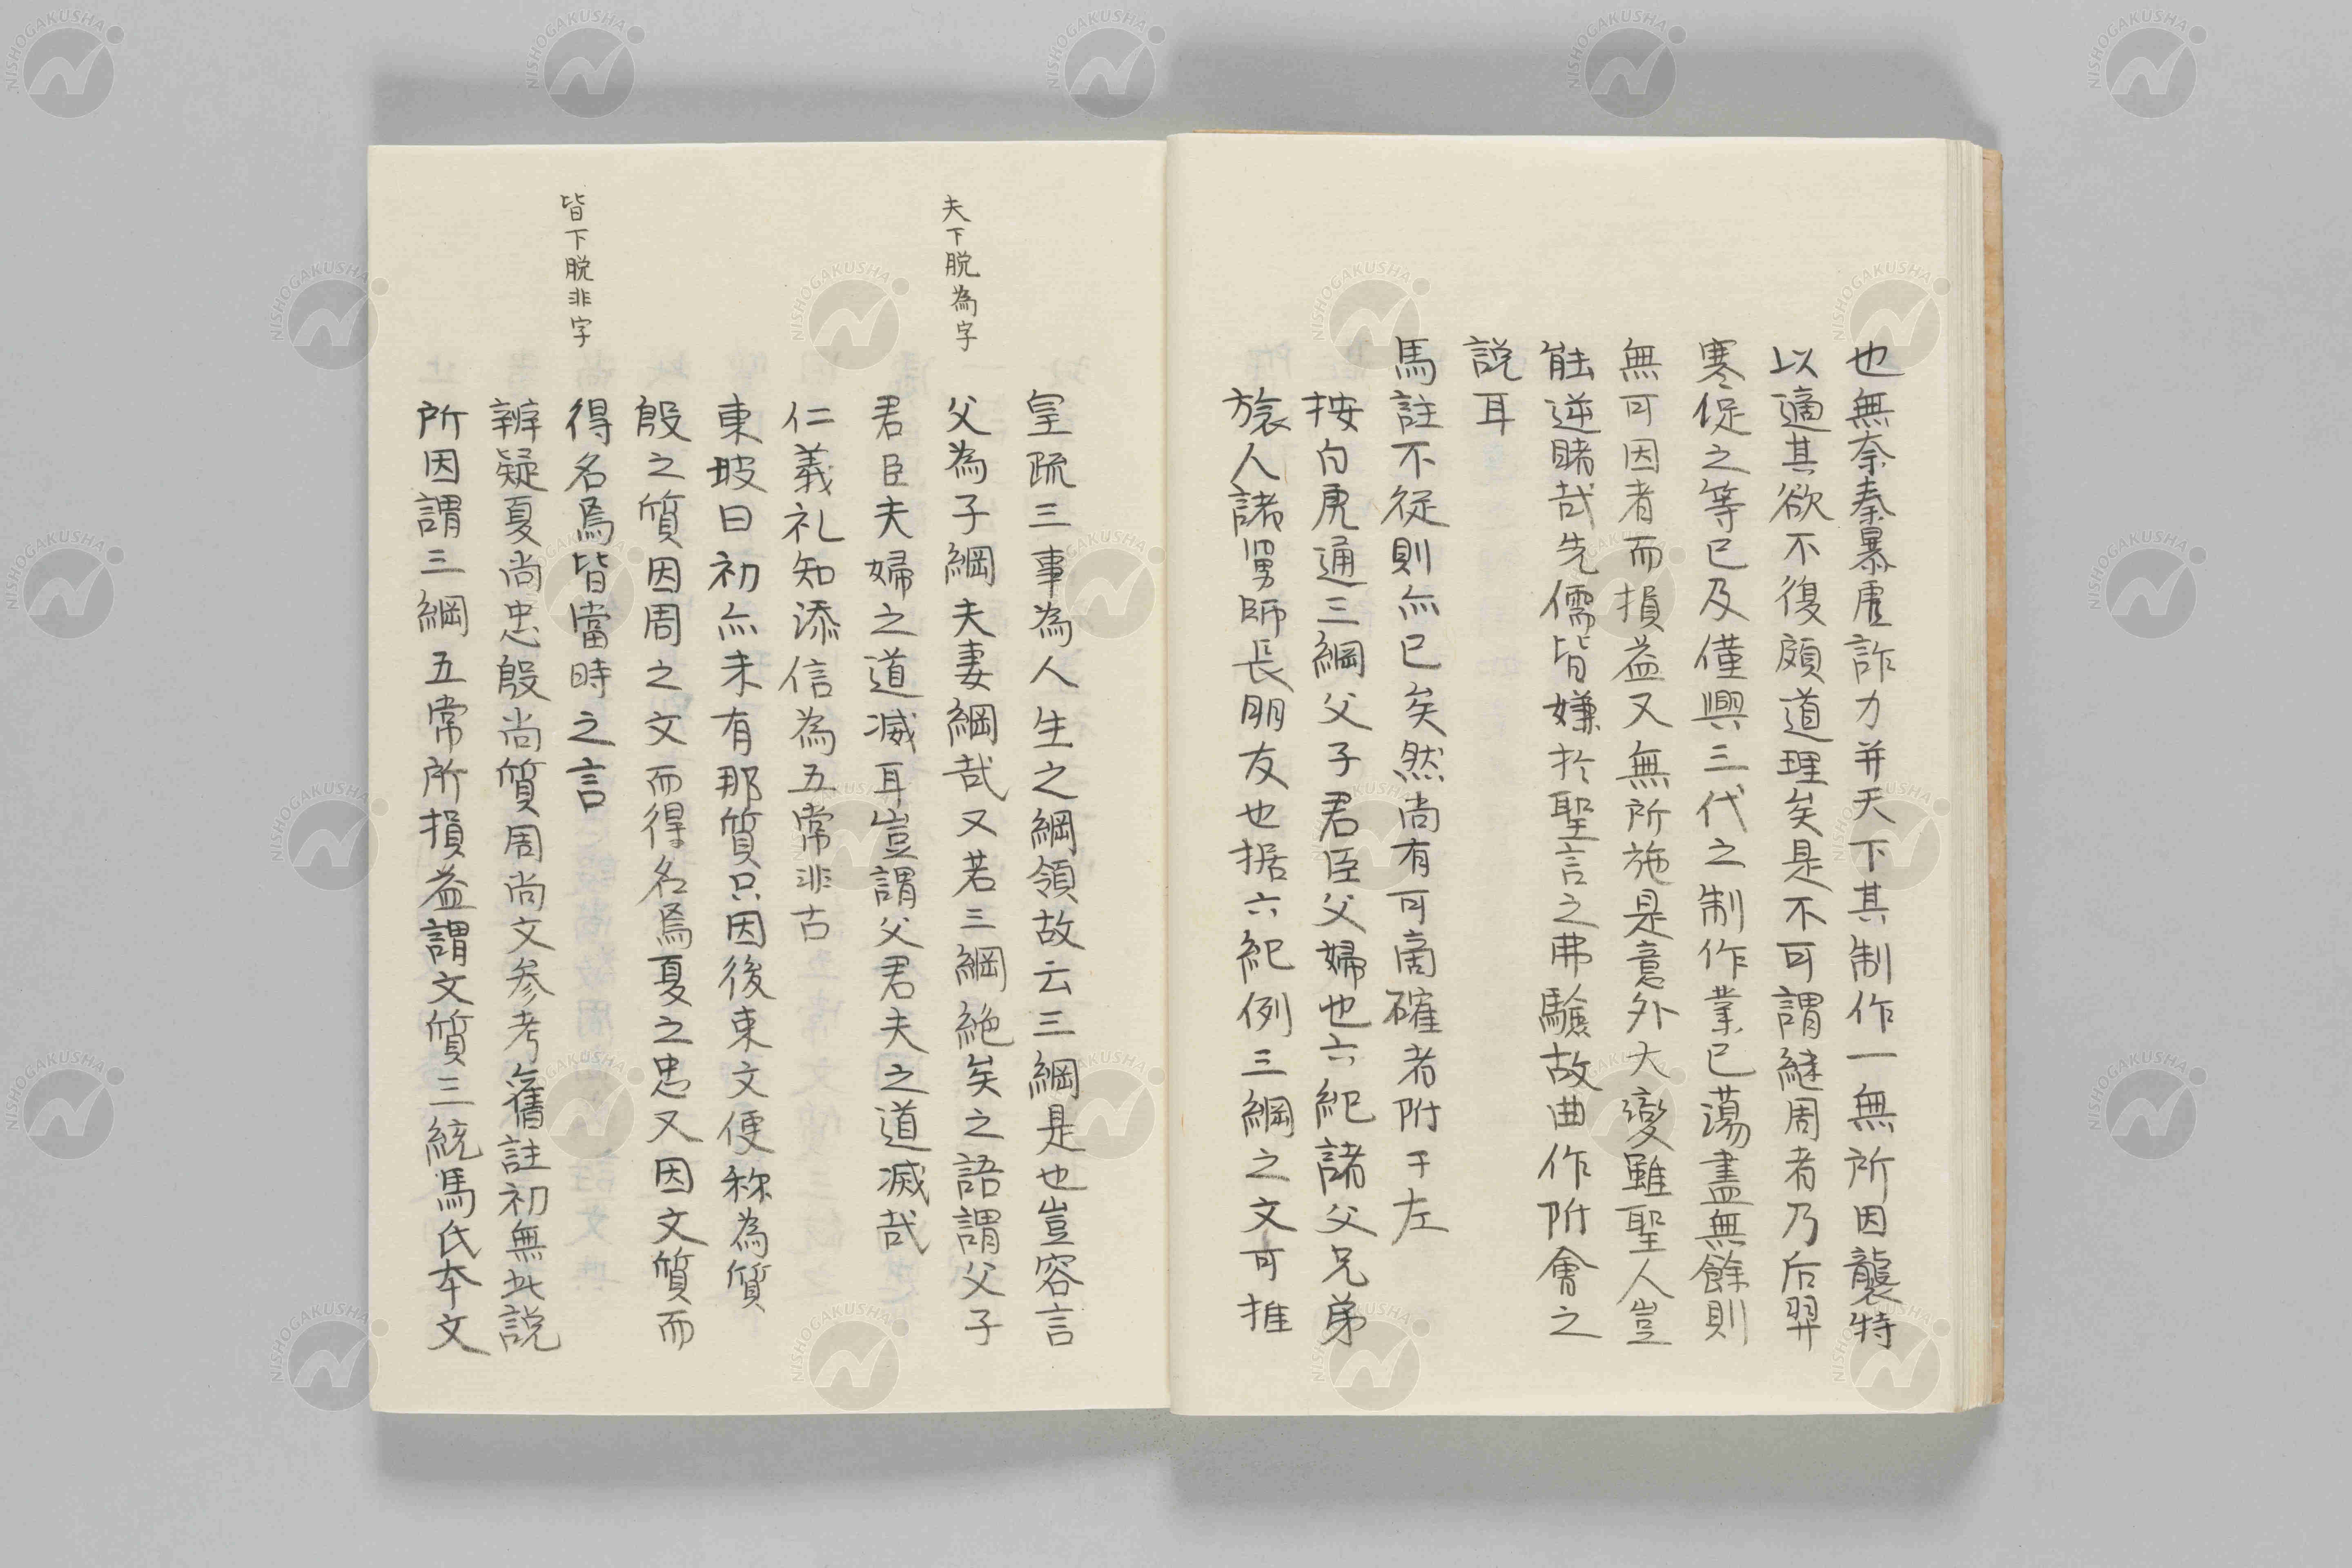 也無奈秦暴虐詐力并天下其制作一無所因襲特
以適其欲不復顧道理矣是不可謂継周者乃后羿
寒促之等已及僅興三代之制作業已蕩盡無餘則
無可因者而損益又無所施是意外大變雖聖人豈
能逆睹哉先儒皆嫌於聖言之弗驗故曲作附會之
説耳
馬註不従則亦已矣然尚有可商確者附于左
按白虎通三綱父子君臣父婦也六紀諸父兄弟
族人諸舅師長朋友也据六紀例三綱之文可推
皇疏三事為人生之綱領故云三綱是也豈容言
父為子綱夫妻綱哉又若三綱絶矣之語謂父子
君臣夫婦之道滅耳豈謂父君夫之道滅哉
仁義礼知添信為五常非古
東坡曰初亦未有那質只因後来文便称為質
殷之質因周之文而得名焉夏之忠又因文質而
得名焉皆當時之言
辨疑夏尚忠殷尚質周尚文参考舊註初無此説
所因謂三綱五常所損益謂文質三統馬氏本文
夫下脱為字
皆下脱非字
NISHOGAKUSHA